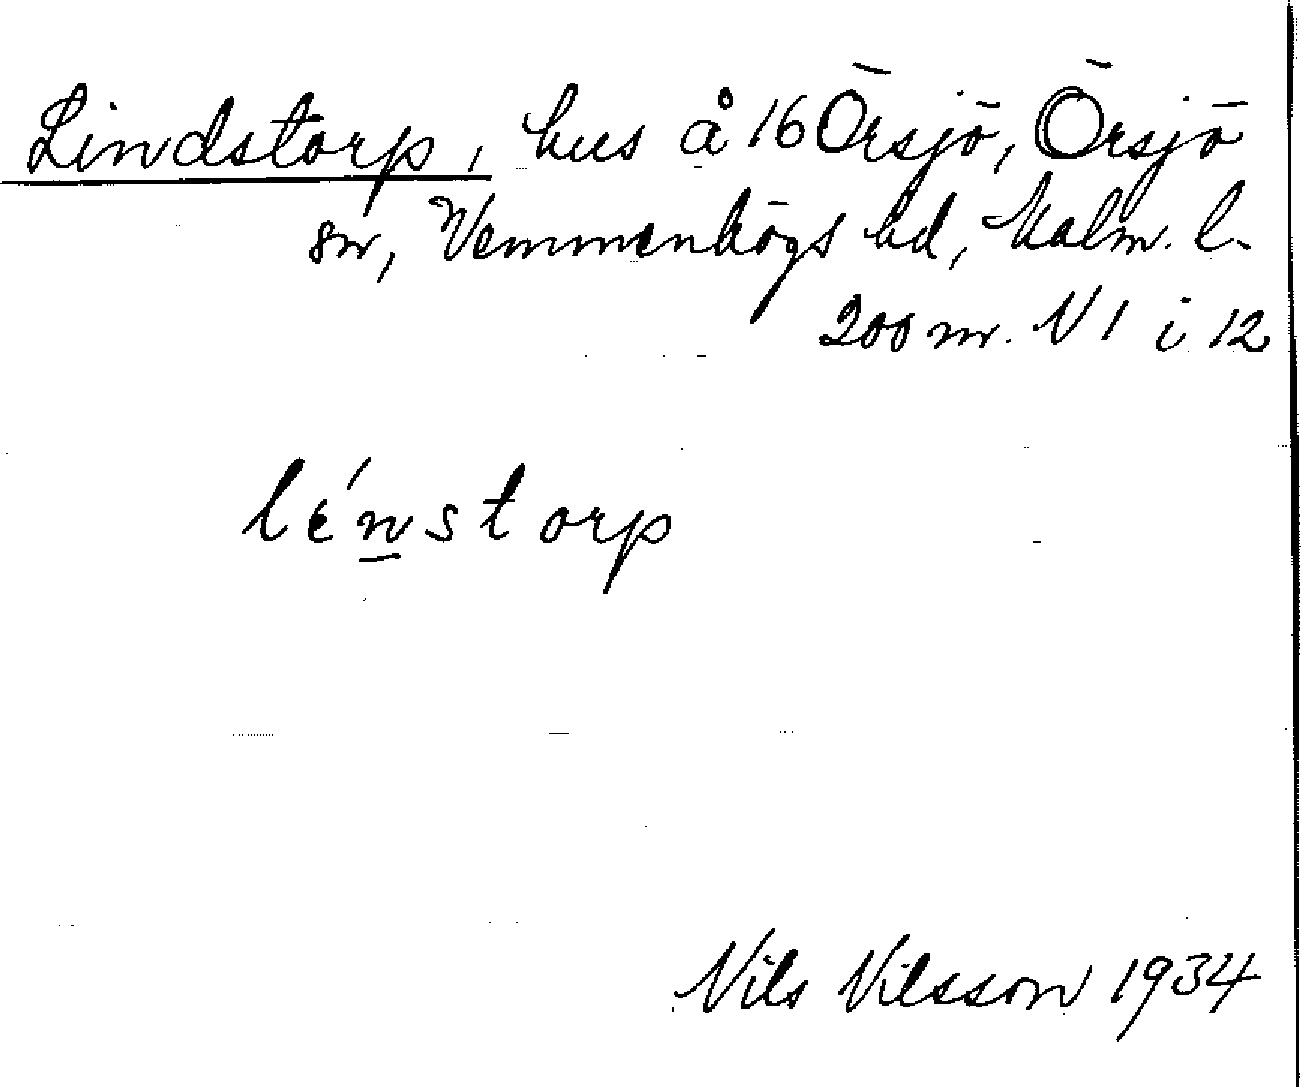 Lindstorp, hus å 16 Örsjö, Örsjö
sn, Vemmenhögs hd, Malm. l.
200 m. N 1 i 12
lénstorp
Nils Nilsson 1934